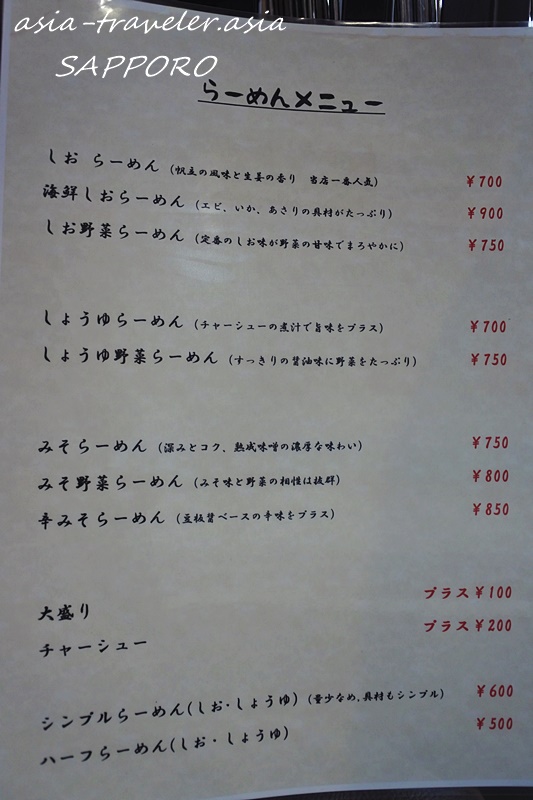 asia-traveler.asia
SAPPORO
らーめんメニュー
しお らーめん (帆立の風味と生姜の香り 当店一番人気) ¥700
海鮮しおらーめん (エビ、いか、あさりの具材がたっぷり) ¥900
しお野菜らーめん (定番のしお味が野菜の甘味でまろやかに) ¥750
しょうゆらーめん (チャーシューの煮汁で旨味をプラス) ¥700
しょうゆ野菜らーめん (すっきりの醤油味に野菜をたっぷり) ¥750
みそらーめん (深みとコク、熟成味噌の濃厚な味わい) ¥750
みそ野菜らーめん (みそ味と野菜の相性は抜群) ¥800
辛みそらーめん (豆板醤ベースの辛味をプラス) ¥850
大盛り プラス¥100
チャーシュー プラス¥200
シンプルらーめん(しお・しょうゆ) (量少なめ、具材もシンプル) ¥600
ハーフらーめん(しお・しょうゆ) ¥500